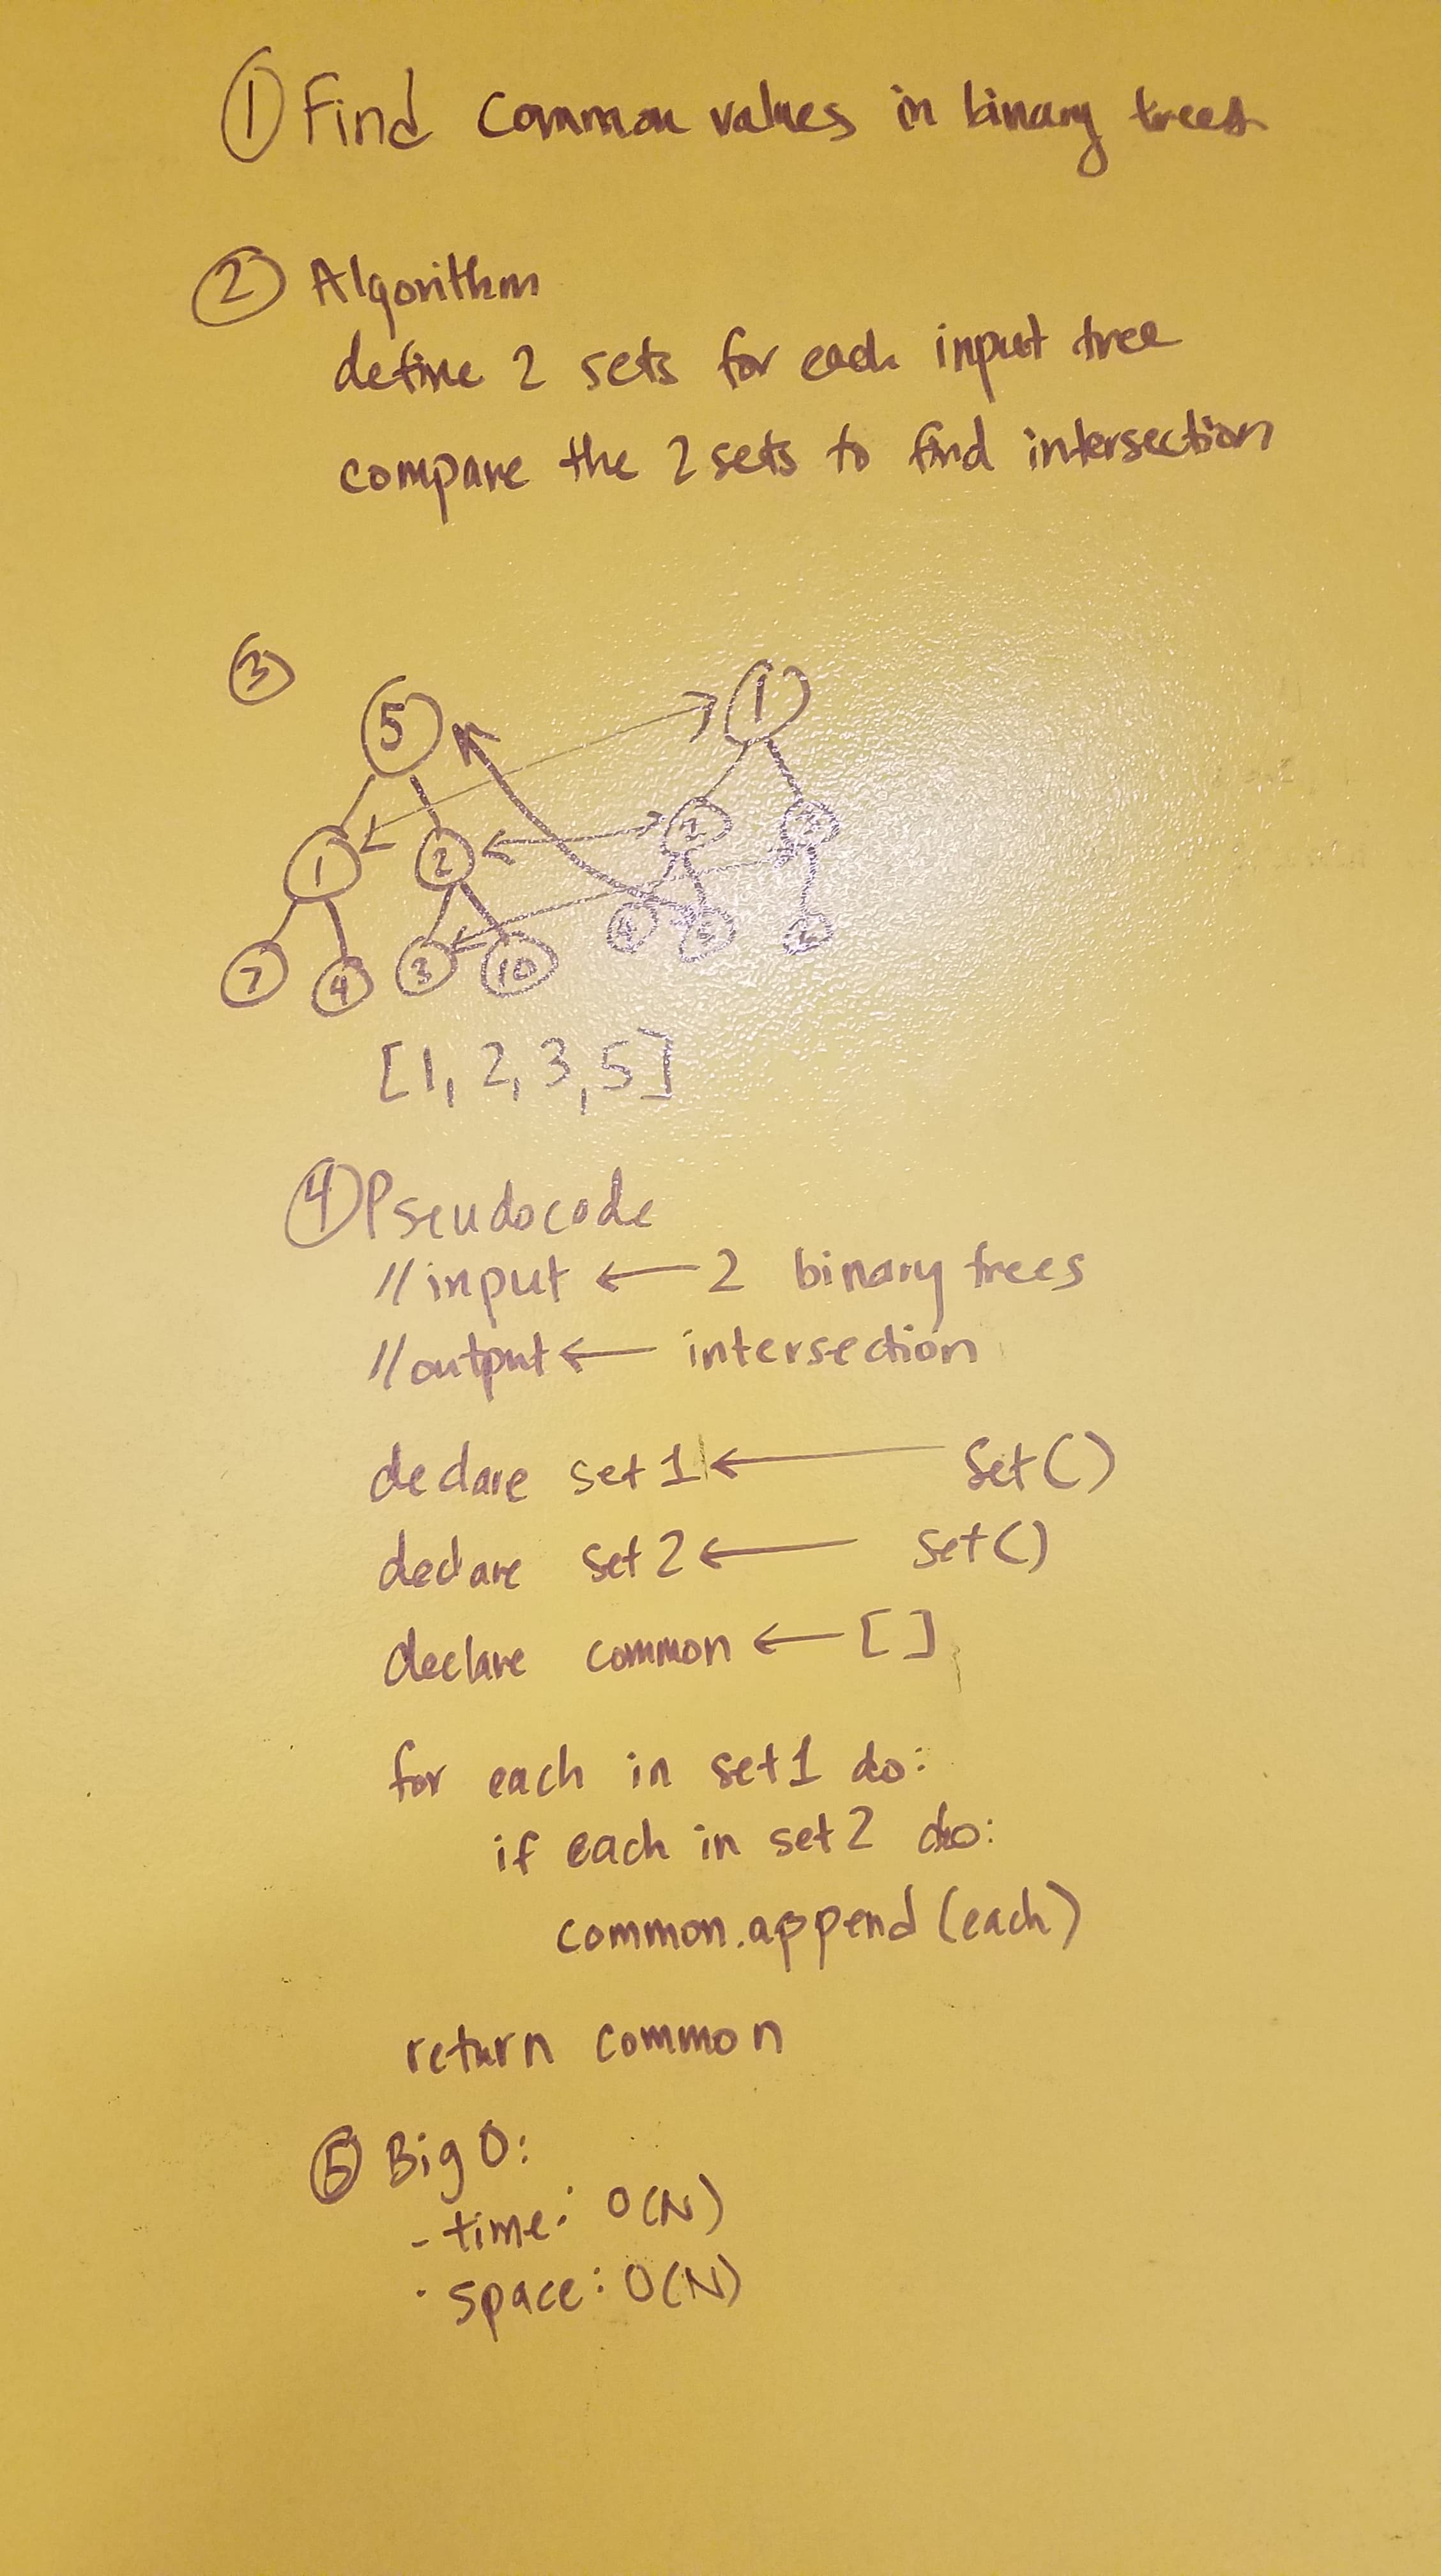 ① Find Common values in binary trees
② Algorithm
define 2 sets for each input tree
compare the 2 sets to find intersection
③
5
1
1 2
2
7 4 3 10
[1, 2, 3, 5]
④ Pseudocode
// input ← 2 binary trees
// output ← intersection
declare set 1 ← Set()
declare set 2 ← set()
declare common ← []
for each in set 1 do:
if each in set 2 do:
common.append(each)
return common
⑤ Big O:
- time: O(N)
· space: O(N)